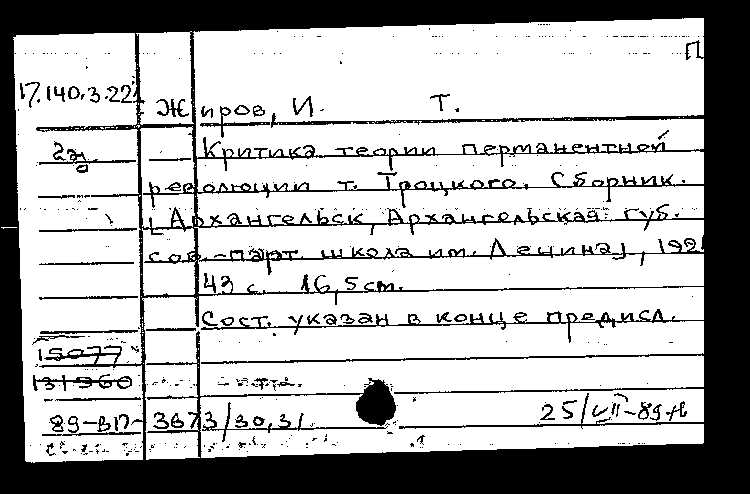 П
17.140.3.22
Жиров, И. Т.
2э
Критика теории перманентной
революции т. Троцкого. Сборник.
[Архангельск, Архангельская губ.
сов.-парт. школа им. Ленина], 192
43 с. 16,5 cm.
Сост. указан в конце предисл.
15077
131960
89-ВП-3673/30,31.
25/VII-89